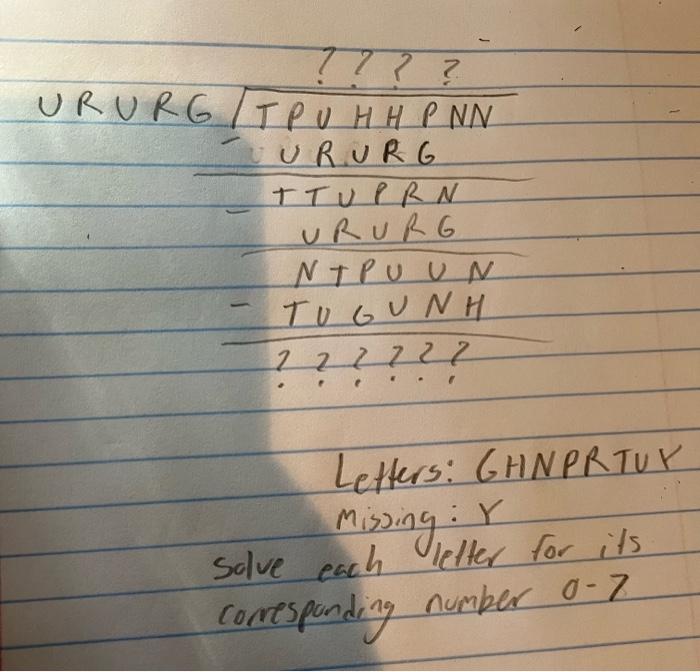 ? ? ? ?
URURG / TPUHHPNN
- URURG
TTUPRN
- URURG
NTPUUN
- TUGUNH
? ? ? ? ? ?
Letters: GHNPRTUY
Missing: Y
Solve each letter for its
corresponding number 0-7